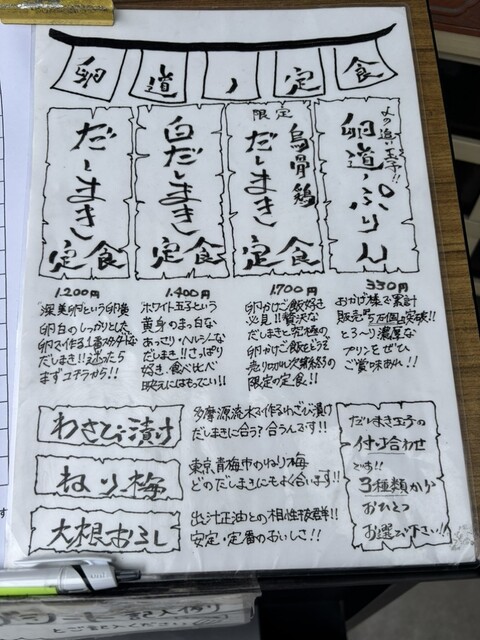 卵道ノ定食
だしまき定食
白だしまき定食
限定
烏骨鶏
だしまき定食
人の追い玉子!!
卵道ぷりん
1.200円
深美卵という卵黄
卵白のしっかりとした
卵で作る1番スタンダード
だしまき!!迷ったら
まずコチラから!!
1.400円
ホワイト玉子という
黄身のまっ白な
あっさり・ヘルシーな
だしまき!!さっぱり
好き・食べ比べ
映えにはもってこい!!
1.700円
卵かけご飯好き
必見!!贅沢な
だしまきと究極の
卵かけご飯をどうぞ
売り切れ次第終了の
限定の定食!!
350円
おかげ様で累計
販売数5万個突破!!
とろ〜り濃厚な
プリンをぜひ
ご賞味あれ!!
わさび漬け
多摩源流水で作るわさび漬け
だしまきに合う?合うんです!!
ねり梅
東京、青梅市のねり梅
どのだしまきにも水く合います!!
大根おろし
出し汁正油との相性抜群!!
安定・定番のおいしさ!!
だしまき玉子の
付け合わせ
です!!
3種類から
おひとつ
お選び下さい!!
記入例り
とご記入ください